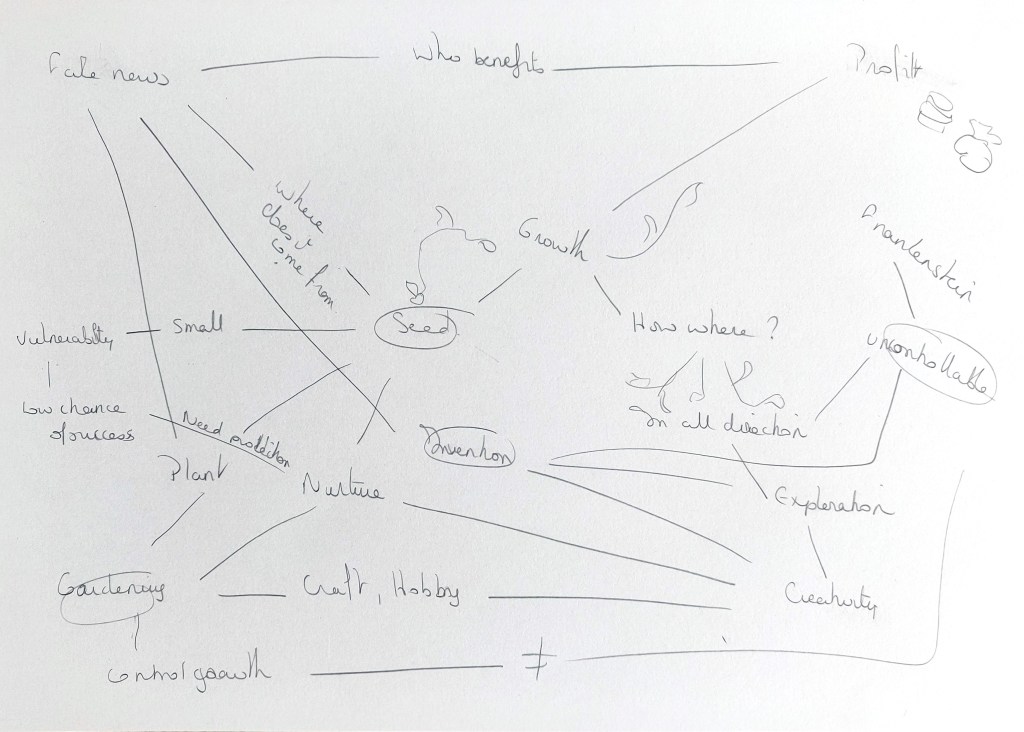 Fake news
who benefits
Profitt
where
does it
come from
Growth
Frankenstein
Vulnerability
Small
Seed
How where ?
Uncontrollable
Low chance
of success
Need protection
In all direction
Invention
Plant
Nurture
Exploration
Gardening
Craft, Hobby
Creativity
Control growth
≠